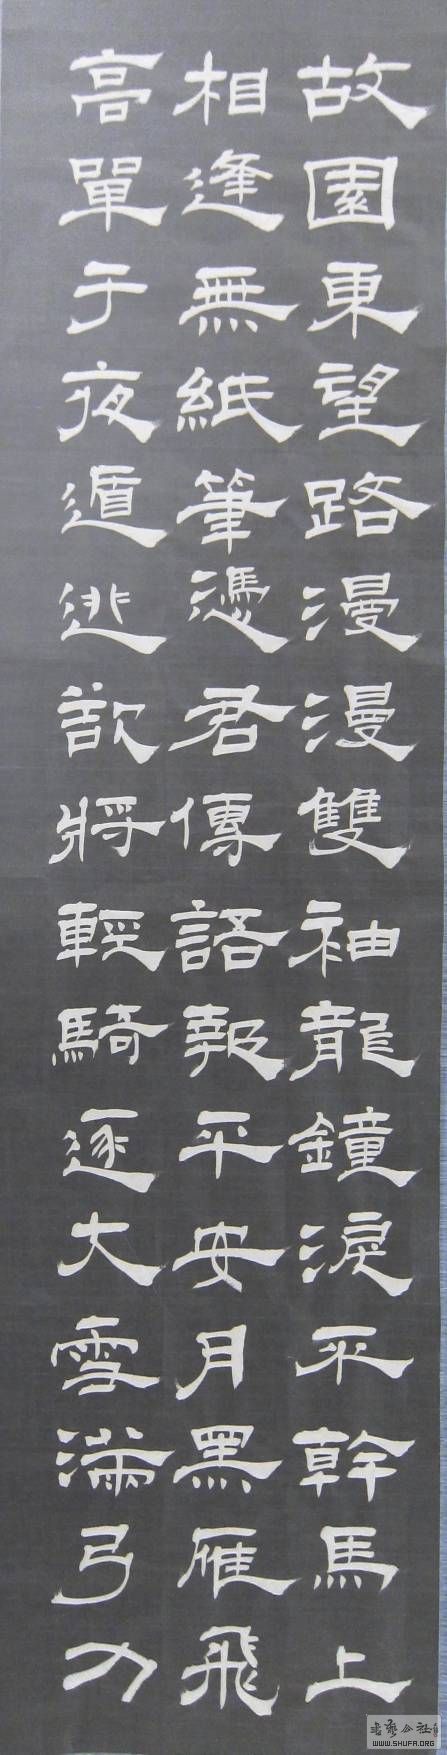 故園東望路漫漫雙袖龍鐘淚不幹馬上
相逢無紙筆憑君傳語報平安月黑雁飛
高單于夜遁逃欲將輕騎逐大雪滿弓刀
書藝公社
WWW.SHUFA.ORG